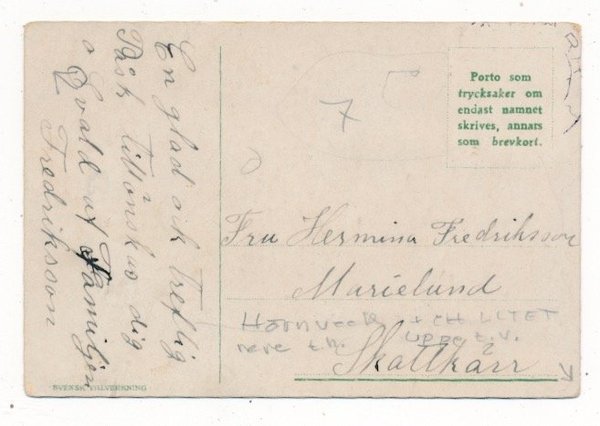 En glad och treflig
Påsk tillönskas dig
o Evald af Familjen
Fredriksson
Porto som
trycksaker om
endast namnet
skrives, annars
som brevkort.
7 5
Fru Hermina Fredriksson
Marielund
Skattkärr
Hörnveck + ett LITET
nere t.h. uppe t.v.
SVENSK TILLVERKNING